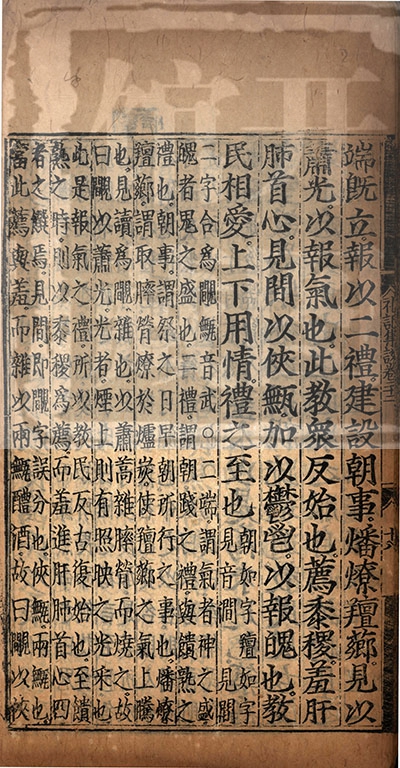 端旣立報以二禮。建設朝事。燔燎羶薌。見以
蕭光。以報氣也。此教衆反始也。薦黍稷。羞肝
肺首心。見間以俠甒。加以鬱鬯。以報魄也。教
民相愛。上下用情。禮之至也
朝如字 羶如字
見音澗 見間
二字合爲覸甒音武。○二端謂氣者神之盛
魄者鬼之盛也。二禮謂朝踐之禮。與饋熟之
禮也。朝事謂祭之日早朝所行之事也。燔燎
羶薌。謂取膟膋燎於爐炭使羶薌之氣上騰
也。見讀爲覸雜也。以蕭蒿雜膟膋而燒之。故
曰覸以蕭光。光者煙上則有照映之光采也
此是報氣之禮所以教民反古復始也。至饋
熟之時。則以黍稷爲薦。而羞進肝肺首心四
者之饌焉。見間即覸字誤分也。俠甒兩甒也。
當此薦與羞而雜以兩甒醴酒。故曰覸以俠